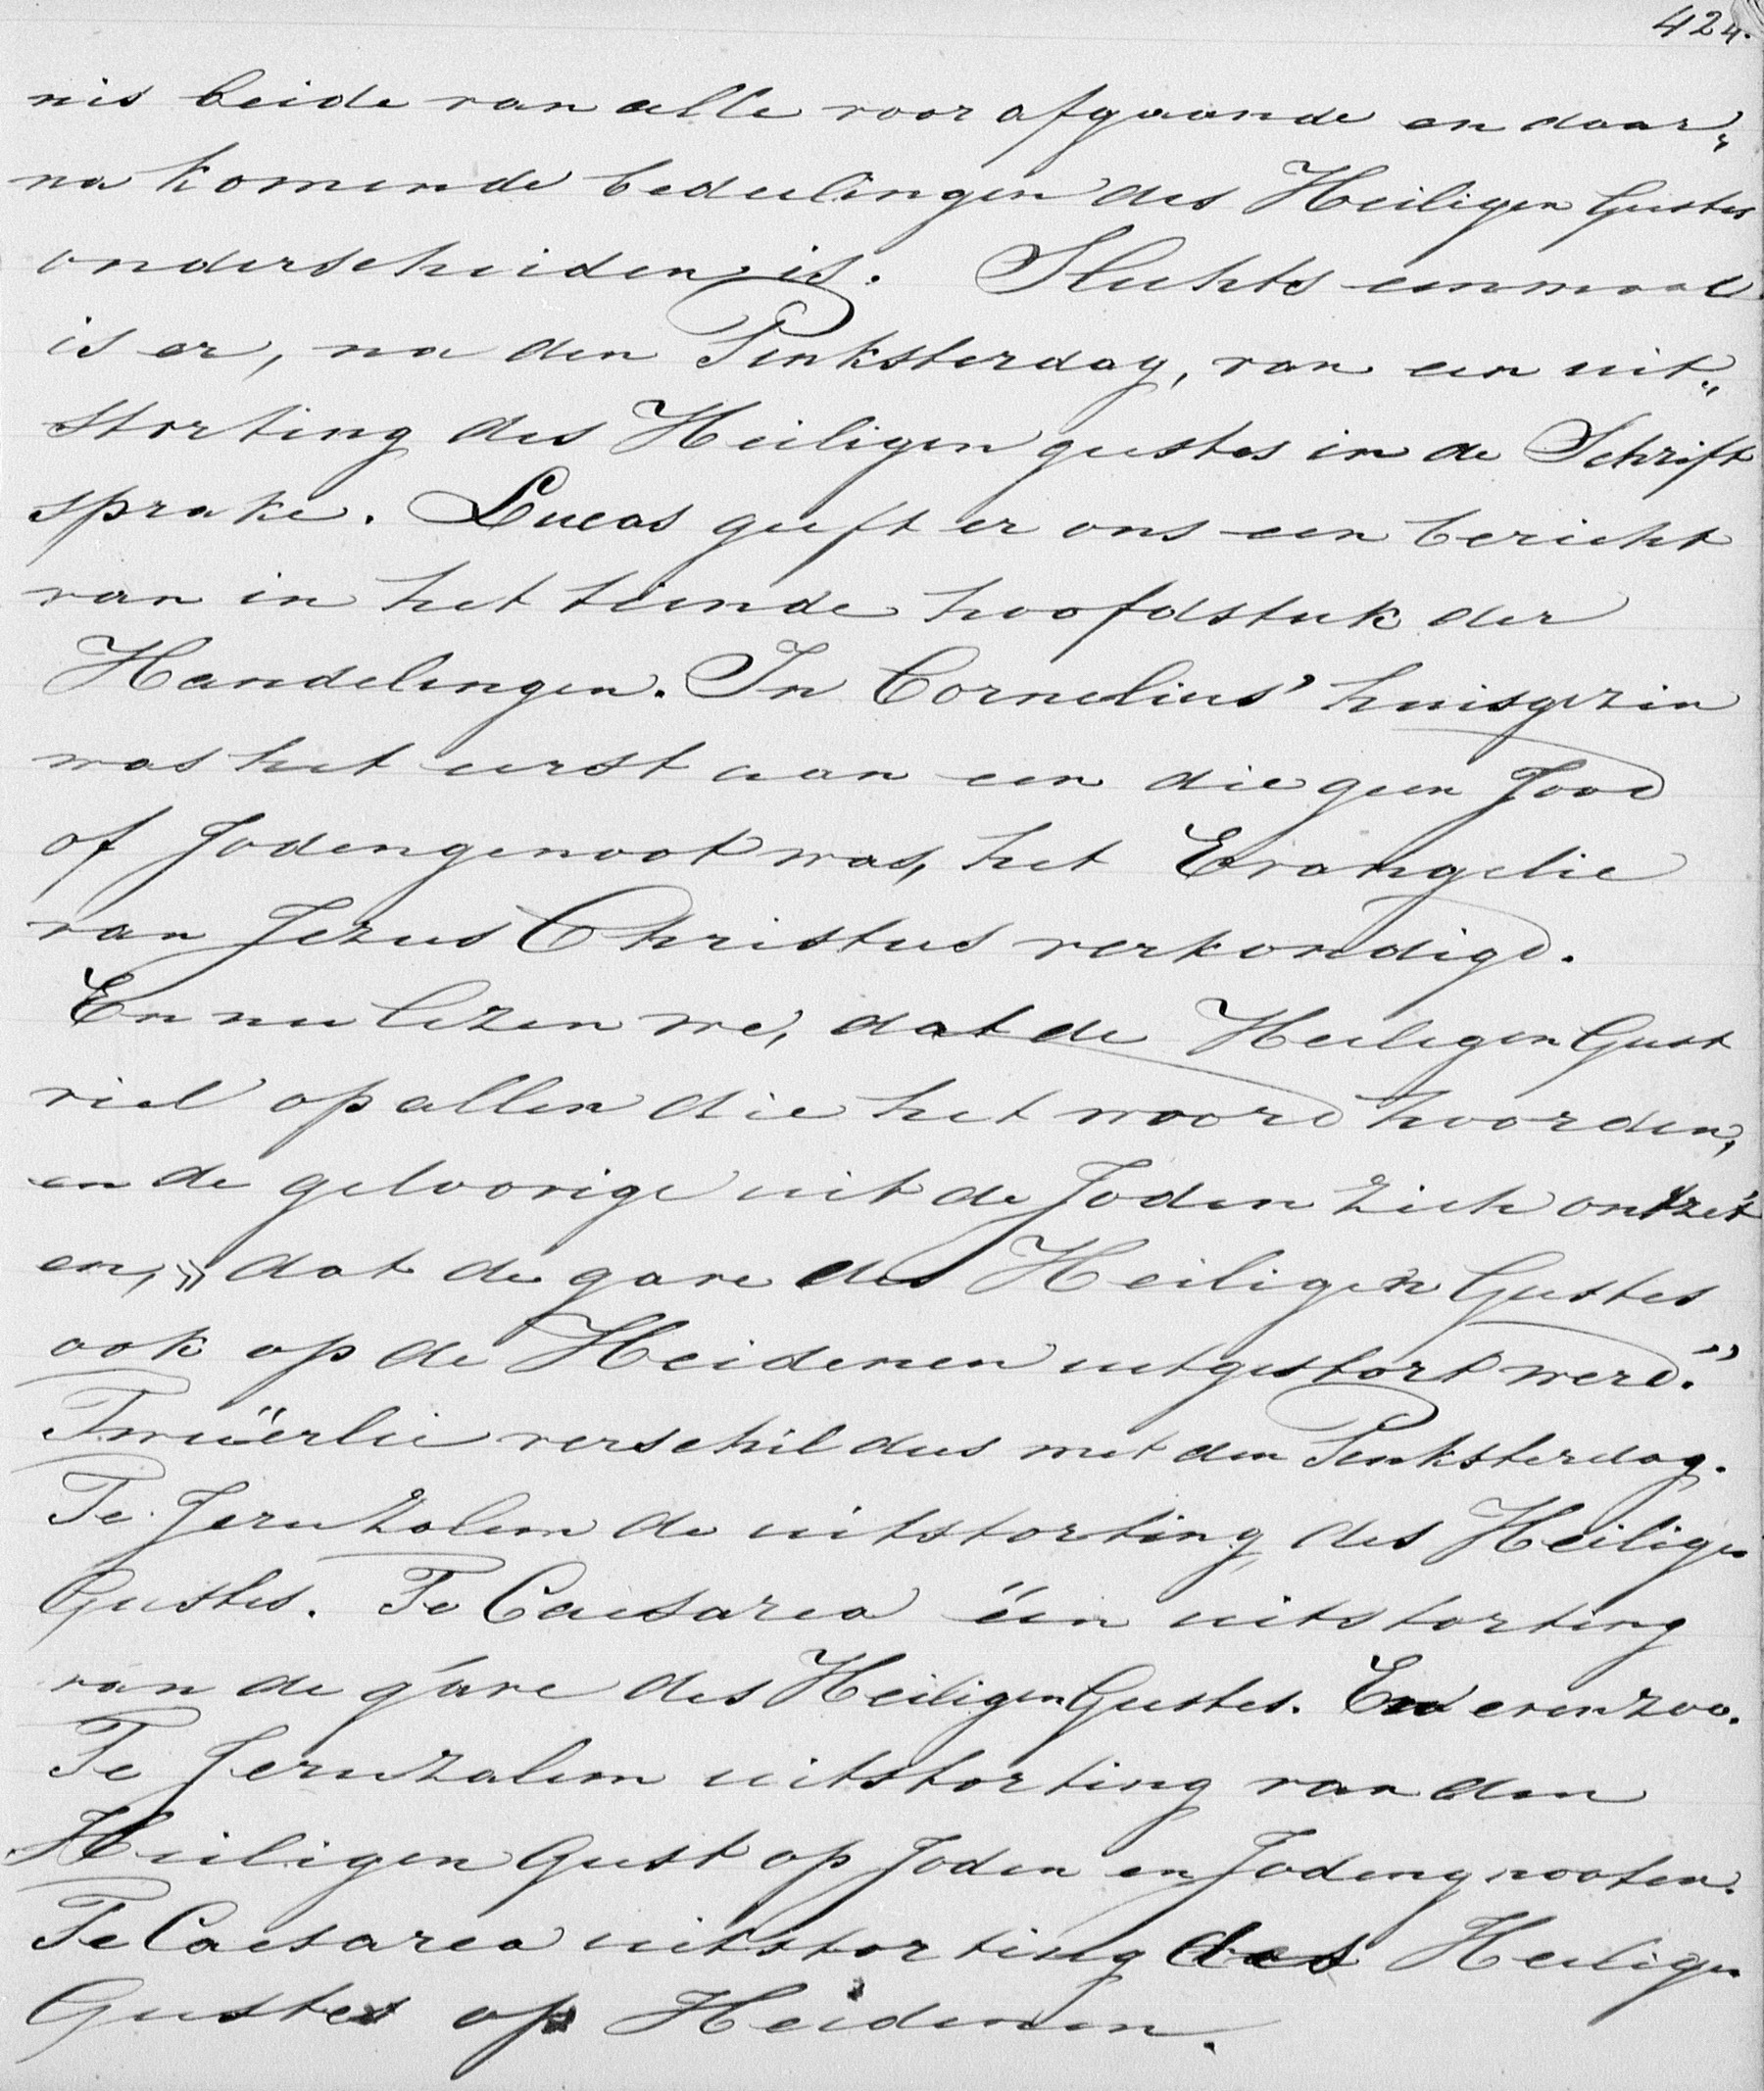 424.
nis beide van alle voor afgaande en daar„
na komende bedeelingen des Heiligen Geestes
onderscheiden is. Slechts eenmaal
is er, na den Pinksterdag, van een uit„
storting des Heiligen geestes in de Schrift
sprake. Lucas geeft er ons een bericht
van in het tiende hoofdstuk der
Handelingen. In Cornelius' huisgezin
was het eerst aan een die geen Jood
of Jodengenoot was, het Evangelie
van Jezus Christus verkondigd.
En nu lezen we, dat de Heiligen Geest
viel op allen die het woord hoorden,
en de geloovige uit de Joden zich ontzet
en, „dat de gave des Heiligen Geestes
ook op de Heidenen uitgestort werd."
Tweeërlei verschil dus met den Pinksterdag.
Te Jeruzalem de uitstorting des Heiligen
Geestes. Te Caesarea één uitstorting
van de gáve des Heiligen Geestes. En evenzoo.
Te Jeruzalem uitstorting van den
Heiligen Geest op Joden en Jodengnooten.
Te Caesarea uitstorting des Heiligen
Geestes op Heidenen.